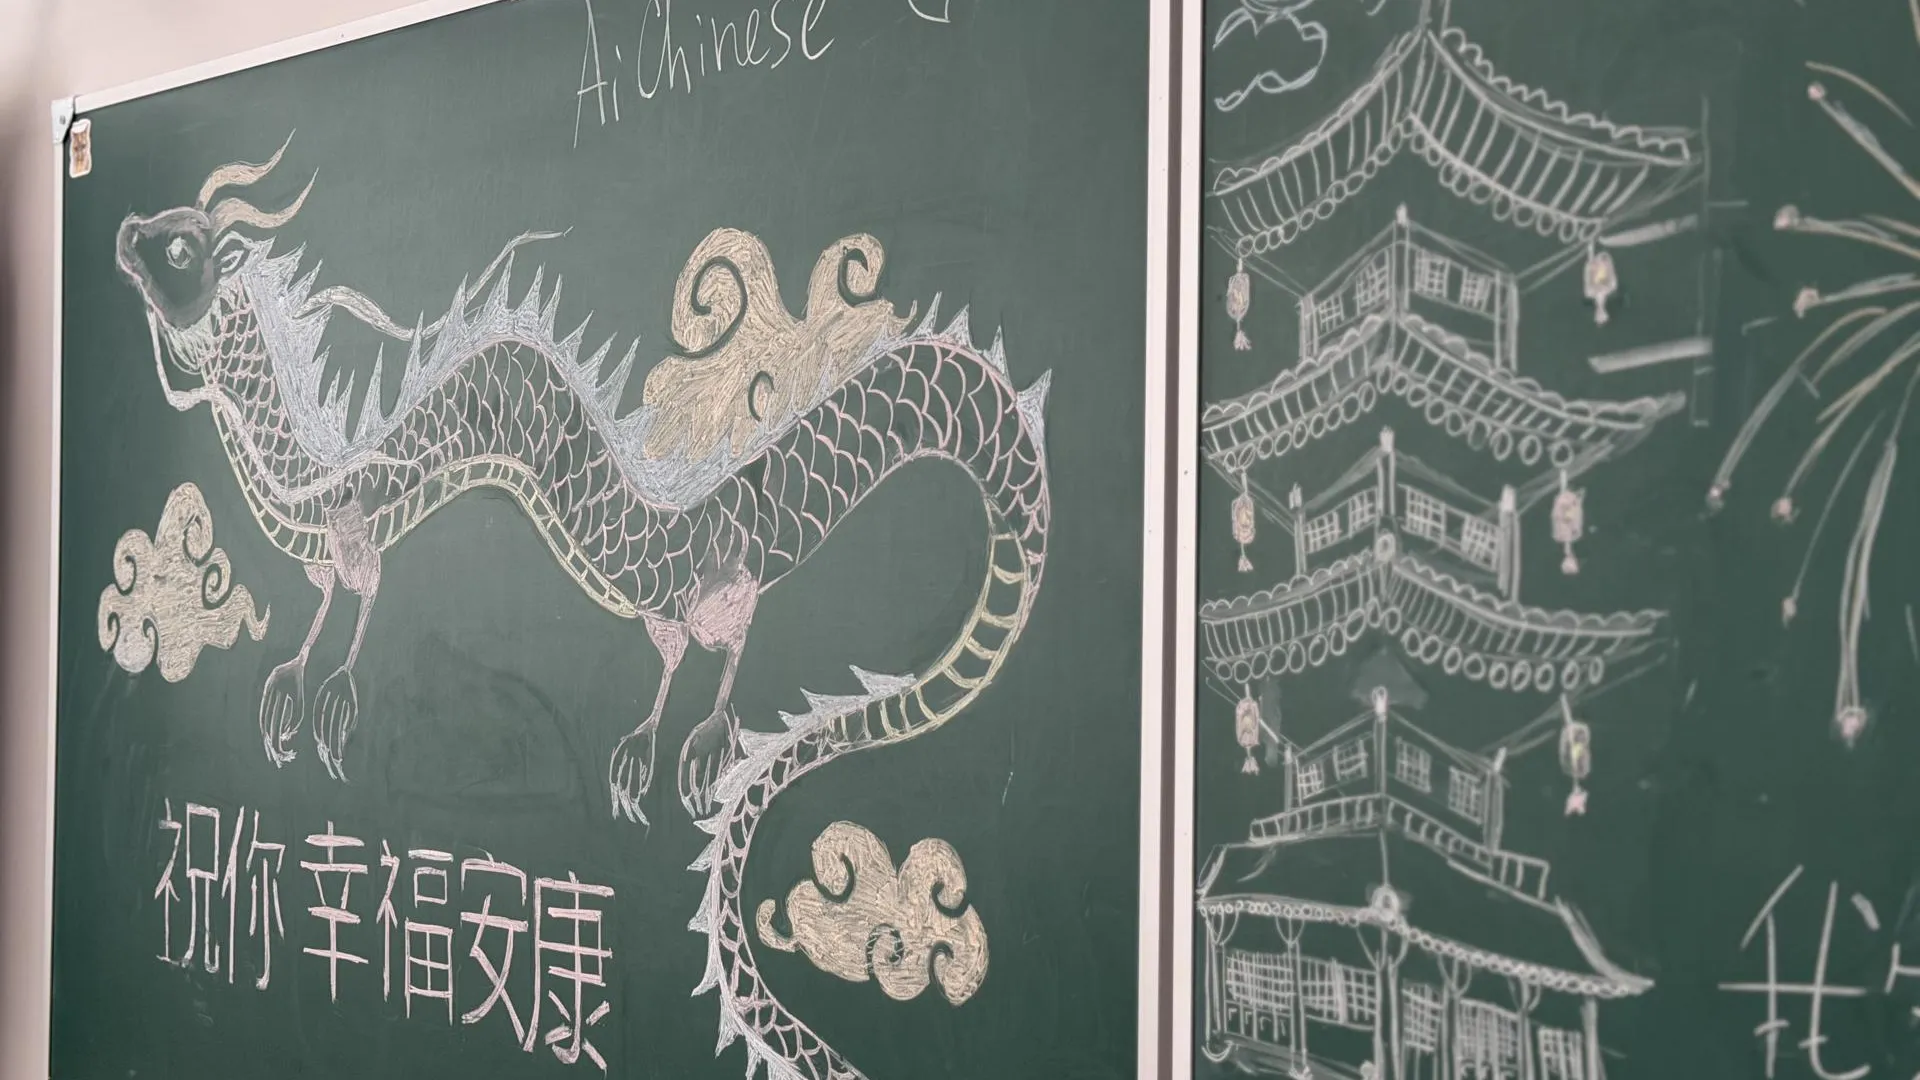 Ai Chinese
祝你幸福安康
我